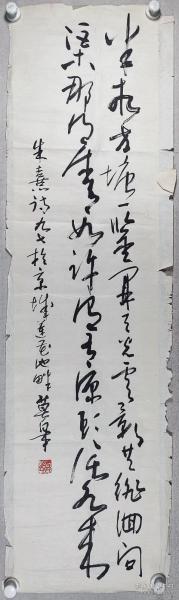 半亩方塘一鉴開天光雲影共徘徊问
渠那得清如许为有源头活水来
朱熹诗九七於京城莲花池畔